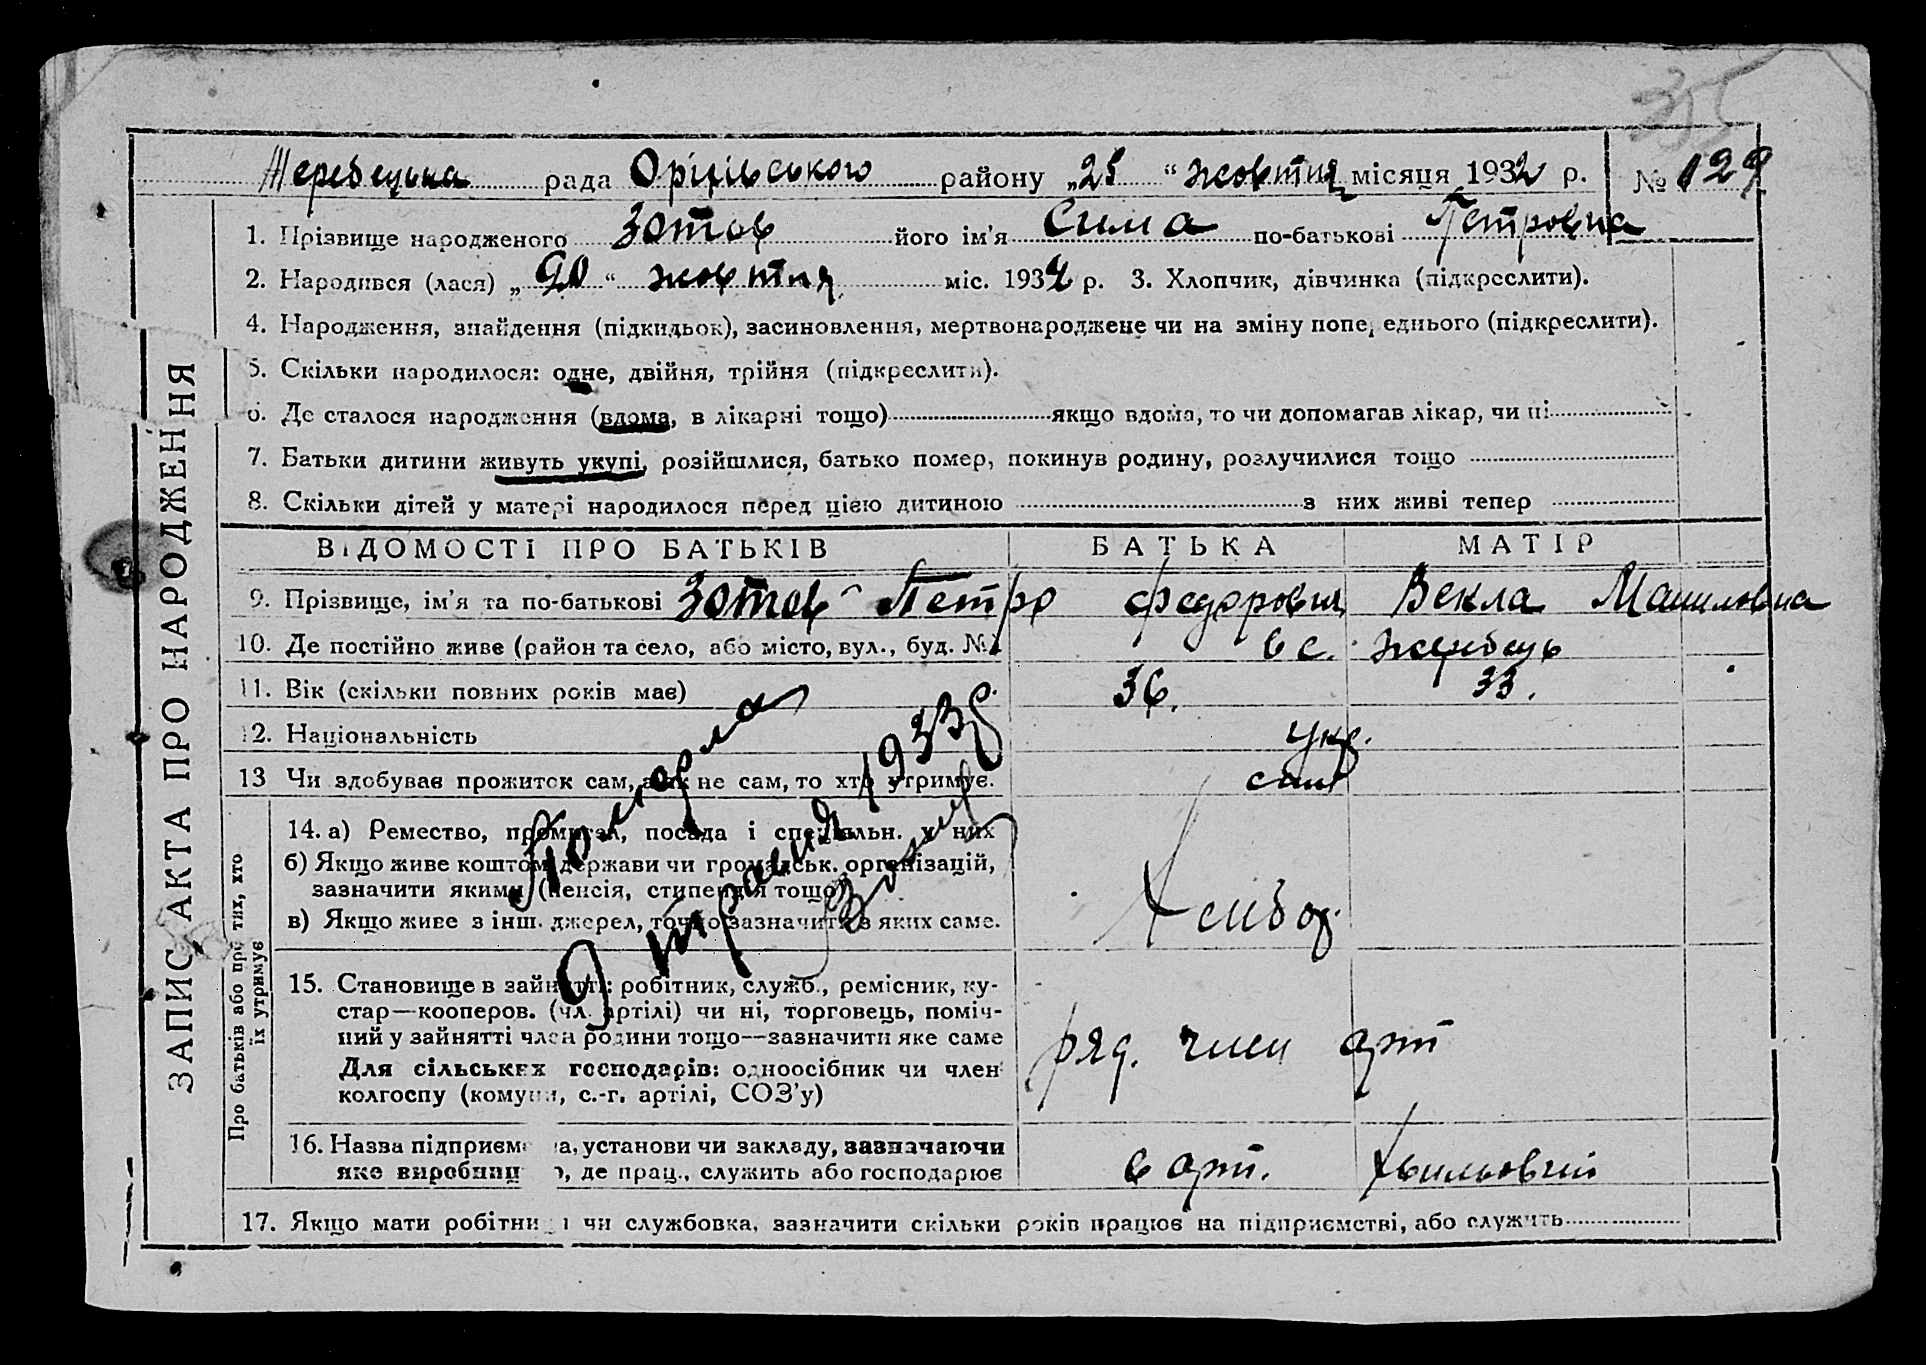 355
Жеребецька рада Оріхівського району „25“ жовтня місяця 1932 р. № 129
1. Прізвище народженого Зотов його ім'я Сима по-батькові Петровна
2. Народився (лася) „20“ жовтня міс. 1932 р. 3. Хлопчик, дівчинка (підкреслити).
4. Народження, знайдення (підкидьок), засиновлення, мертвонароджене чи на зміну попереднього (підкреслити).
5. Скільки народилося: одне, двійня, трійня (підкреслити).
6. Де сталося народження (вдома, в лікарні тощо) якщо вдома, то чи допомагав лікар, чи ні
7. Батьки дитини живуть укупі, розійшлися, батько помер, покинув родину, розлучилися тощо
8. Скільки дітей у матері народилося перед цією дитиною з них живі тепер
ЗАПИС АКТА ПРО НАРОДЖЕННЯ
ВІДОМОСТІ ПРО БАТЬКІВ БАТЬКА МАТІР
9. Прізвище, ім'я та по-батькові Зотов Петро Федорович Векла Мануиловна
10. Де постійно живе (район та село, або місто, вул., буд. № в с. Жеребець
11. Вік (скільки повних років має) 36. 33.
12. Національність укр.
13 Чи здобуває прожиток сам, а як не сам, то хто утримує. сам
Померла
9 травня 1933 р
Про батьків або про тих, хто їх утримує
14. а) Ремество, промисел, посада і спеціальн. у них
б) Якщо живе коштом держави чи громадськ. організацій,
зазначити якими (пенсія, стипендія тощо)
в) Якщо живе з інш. джерел, точно зазначити з яких саме.
Хлібор.
15. Становище в занятті: робітник, служб., ремісник, ку-
стар—кооперов. (чл. артілі) чи ні, торговець, поміч-
ний у зайнятті член родини тощо—зазначити яке саме
Для сільських господарів: одноосібник чи член
колгоспу (комуни, с.-г. артілі, СОЗ'у)
ряд. член арт
16. Назва підприємства, установи чи закладу, зазначаючи
яке виробництво, де прац., служить або господарює
в арт. Хвильовий
17. Якщо мати робітниця чи службовка, зазначити скільки років працює на підприємстві, або служить